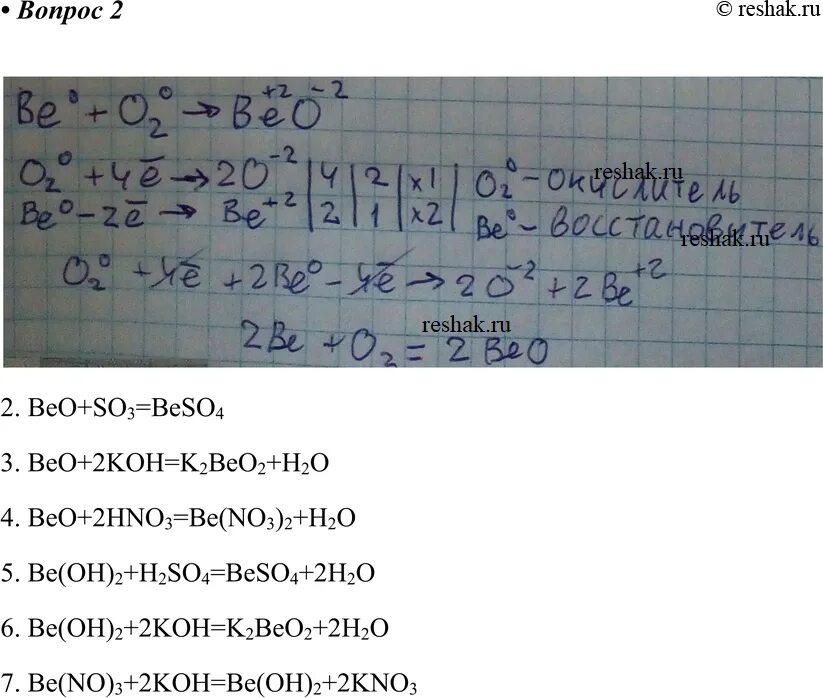 • Вопрос 2
© reshak.ru
Be⁰ + O₂⁰ → Be⁺²O⁻²
O₂⁰ + 4ē → 2O⁻² | 4 | 2 | x1 | O₂⁰ – окислитель
reshak.ru
Be⁰ – 2ē → Be⁺² | 2 | 1 | x2 | Be⁰ – восстановитель
reshak.ru
O₂⁰ + 4ē + 2Be⁰ – 4ē → 2O⁻² + 2Be⁺²
reshak.ru
2Be + O₂ = 2BeO
2. BeO+SO₃=BeSO₄
3. BeO+2KOH=K₂BeO₂+H₂O
4. BeO+2HNO₃=Be(NO₃)₂+H₂O
5. Be(OH)₂+H₂SO₄=BeSO₄+2H₂O
6. Be(OH)₂+2KOH=K₂BeO₂+2H₂O
7. Be(NO)₃+2KOH=Be(OH)₂+2KNO₃